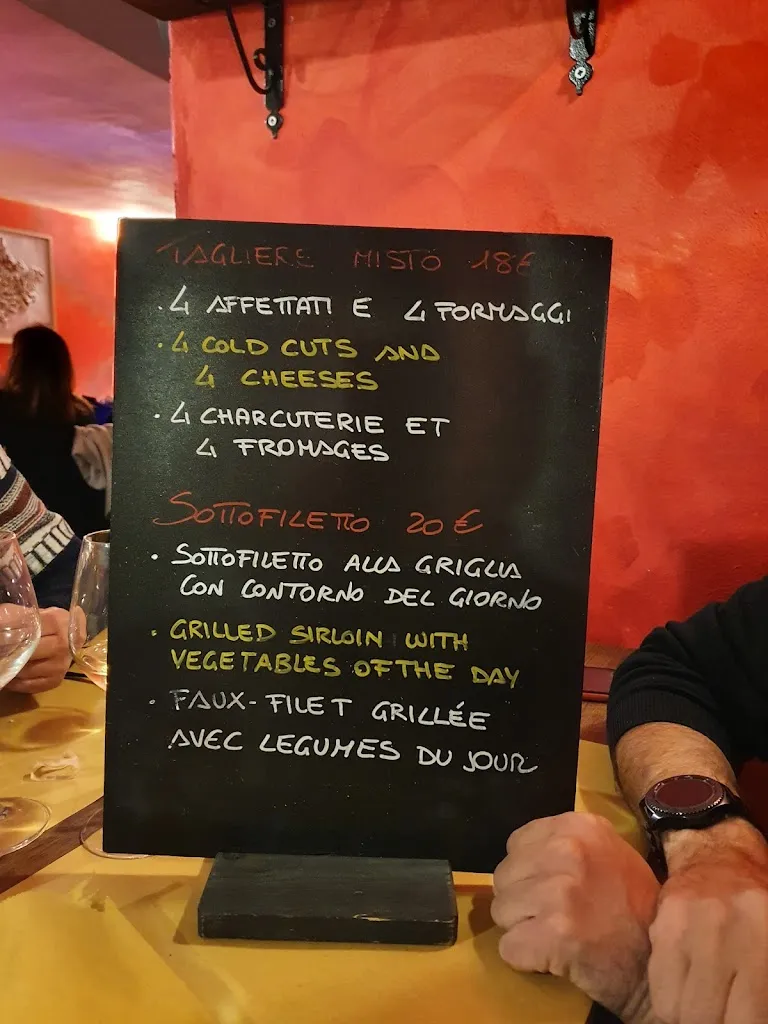 TAGLIERE MISTO 18€
· 4 AFFETTATI E 4 FORMAGGI
· 4 COLD CUTS AND
4 CHEESES
· 4 CHARCUTERIE ET
4 FROMAGES
SOTTOFILETTO 20€
· SOTTOFILETTO ALLA GRIGLIA
CON CONTORNO DEL GIORNO
· GRILLED SIRLOIN WITH
VEGETABLES OF THE DAY
· FAUX-FILET GRILLÉE
AVEC LEGUMES DU JOUR